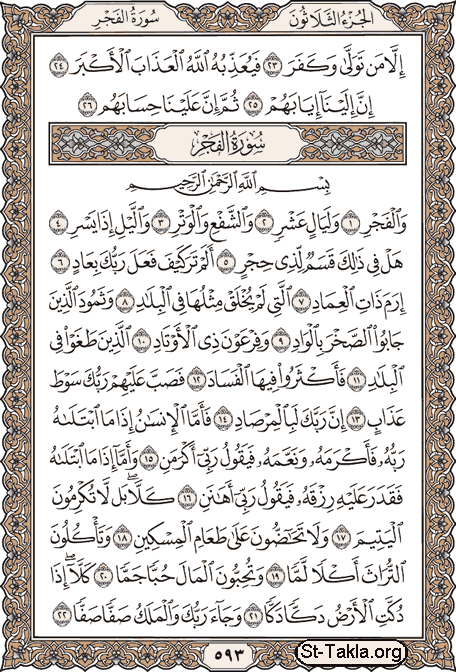 الجزء الثلاثون سورة الفجر
إِلَّا مَن تَوَلَّىٰ وَكَفَرَ ٢٣ فَيُعَذِّبُهُ ٱللَّهُ ٱلْعَذَابَ ٱلْأَكْبَرَ ٢٤
إِنَّ إِلَيْنَآ إِيَابَهُمْ ٢٥ ثُمَّ إِنَّ عَلَيْنَا حِسَابَهُم ٢٦
سُورَةُ الفَجْرِ
بِسْمِ ٱللَّهِ ٱلرَّحْمَٰنِ ٱلرَّحِيمِ
وَٱلْفَجْرِ ١ وَلَيَالٍ عَشْرٍ ٢ وَٱلشَّفْعِ وَٱلْوَتْرِ ٣ وَٱلَّيْلِ إِذَا يَسْرِ ٤
هَلْ فِى ذَٰلِكَ قَسَمٌ لِّذِى حِجْرٍ ٥ أَلَمْ تَرَ كَيْفَ فَعَلَ رَبُّكَ بِعَادٍ ٦
إِرَمَ ذَاتِ ٱلْعِمَادِ ٧ ٱلَّتِى لَمْ يُخْلَقْ مِثْلُهَا فِى ٱلْبِلَٰدِ ٨ وَثَمُودَ ٱلَّذِينَ
جَابُوا۟ ٱلصَّخْرَ بِٱلْوَادِ ٩ وَفِرْعَوْنَ ذِى ٱلْأَوْتَادِ ١٠ ٱلَّذِينَ طَغَوْا۟ فِى
ٱلْبِلَٰدِ ١١ فَأَكْثَرُوا۟ فِيهَا ٱلْفَسَادَ ١٢ فَصَبَّ عَلَيْهِمْ رَبُّكَ سَوْطَ
عَذَابٍ ١٣ إِنَّ رَبَّكَ لَبِٱلْمِرْصَادِ ١٤ فَأَمَّا ٱلْإِنسَٰنُ إِذَا مَا ٱبْتَلَىٰهُ
رَبُّهُۥ فَأَكْرَمَهُۥ وَنَعَّمَهُۥ فَيَقُولُ رَبِّىٓ أَكْرَمَنِ ١٥ وَأَمَّآ إِذَا مَا ٱبْتَلَىٰهُ
فَقَدَرَ عَلَيْهِ رِزْقَهُۥ فَيَقُولُ رَبِّىٓ أَهَٰنَنِ ١٦ كَلَّا ۖ بَل لَّا تُكْرِمُونَ
ٱلْيَتِيمَ ١٧ وَلَا تَحَٰٓضُّونَ عَلَىٰ طَعَامِ ٱلْمِسْكِينِ ١٨ وَتَأْكُلُونَ
ٱلتُّرَاثَ أَكْلًا لَّمًّا ١٩ وَتُحِبُّونَ ٱلْمَالَ حُبًّا جَمًّا ٢٠ كَلَّآ ۖ إِذَا
دُكَّتِ ٱلْأَرْضُ دَكًّا دَكًّا ٢١ وَجَآءَ رَبُّكَ وَٱلْمَلَكُ صَفًّا صَفًّا ٢٢
٥٩٣
St-Takla.org